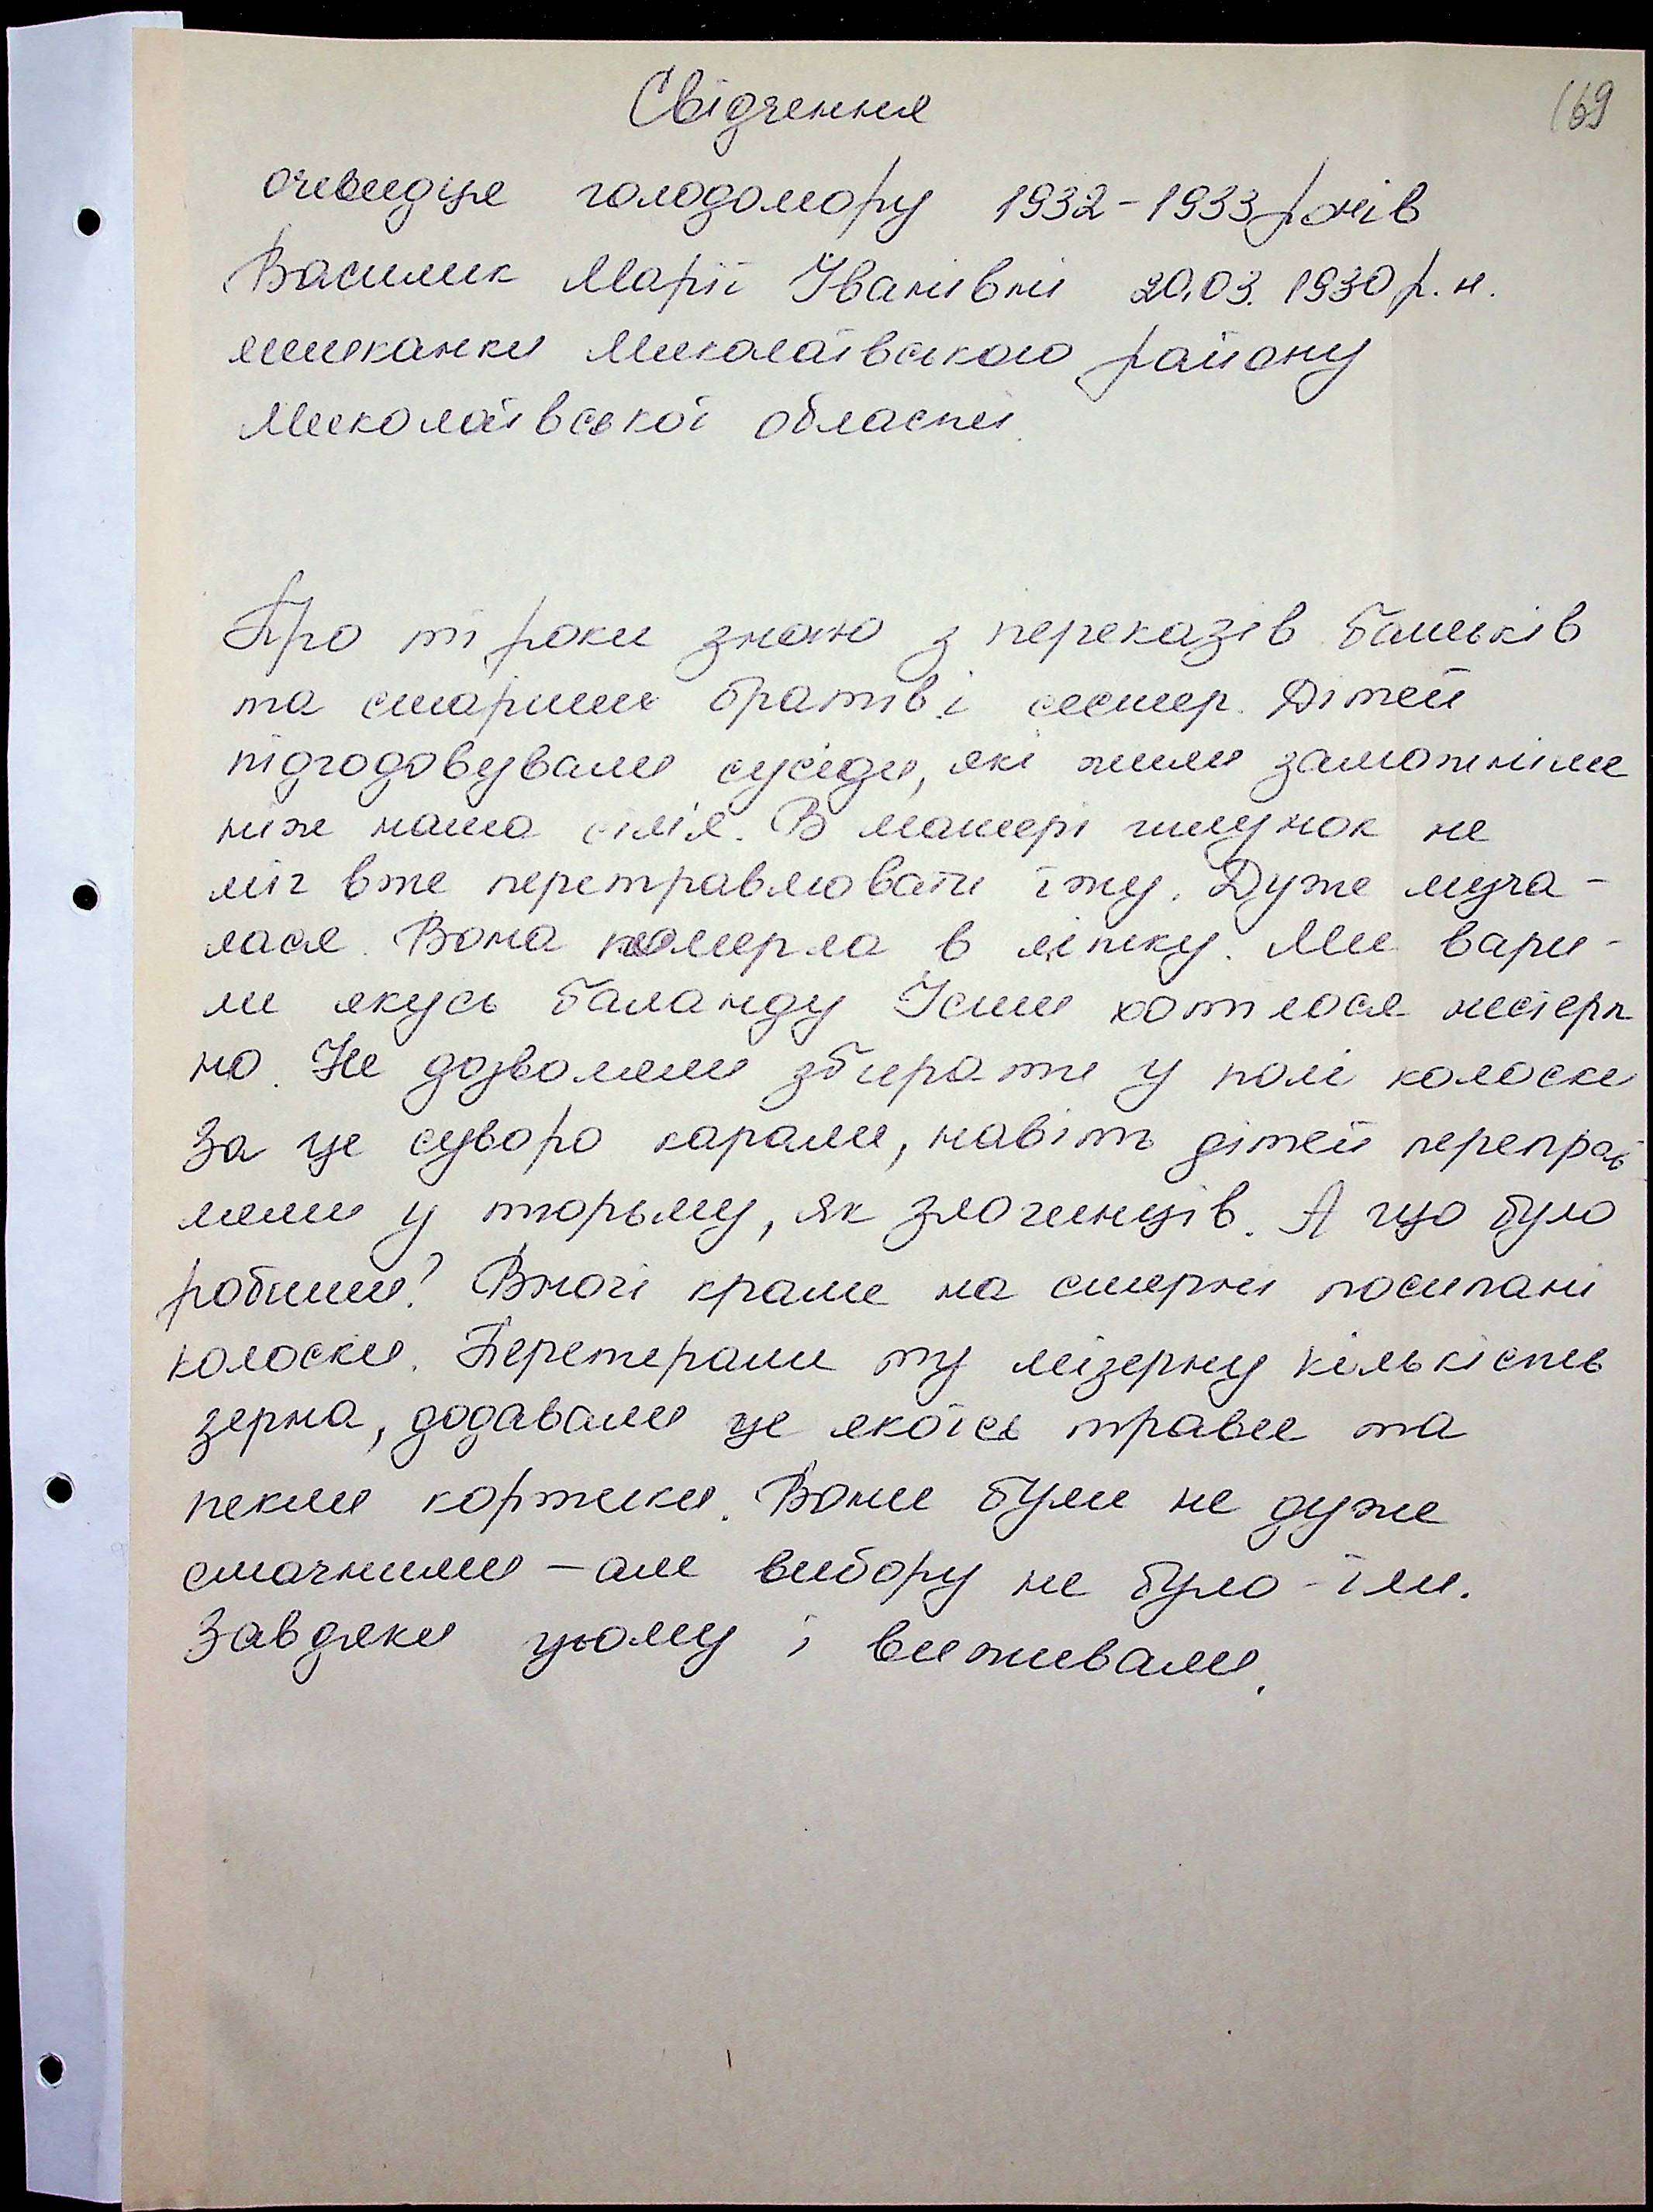 169
Свідчення
очевидця голодомору 1932-1933 років
Василик Марії Іванівни 20.03.1930 р.н.
мешканки Миколаївського району
Миколаївської області.
Про ті роки знаю з переказів батьків
та старших братів і сестер. Дітей
підгодовували сусіди, які жили заможніше
ніж наша сім'я. В матері шлунок не
міг вже перетравлювати їжу. Дуже муча-
лася. Вона померла в літку. Ми вари-
ли якусь баланду Їсти хотілося нестерп
но. Не дозволяли збирати у полі колоски
За це суворо карали, навіть дітей переправ
ляли у тюрьму, як злочинців. А що було
робити? Вночі крали на стерні посипані
колоски. Перетерали ту мізерну кількість
зерна, додавали ще якоїсь трави та
пекли коржики. Вони були не дуже
смачними - але вибору не було - їли.
Завдяки цьому і виживали.